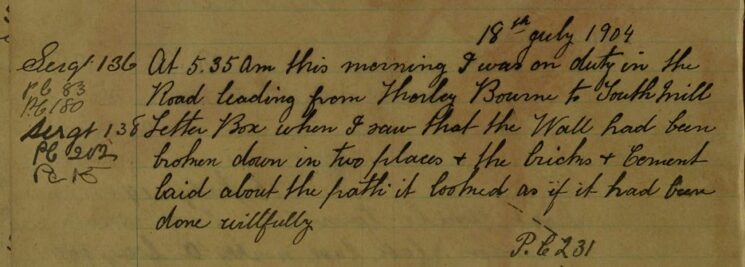 18th July 1904
Sergt 136 At 5.35 am this morning I was on duty in the
PC 83
PC 180 Road leading from Thorley Bourne to South Mill
Sergt 138 Letter Box when I saw that the Wall had been
PC 202 broken down in two places + the bricks + Cement
PC 15 laid about the path it looked as if it had been
done willfully
P.C 231